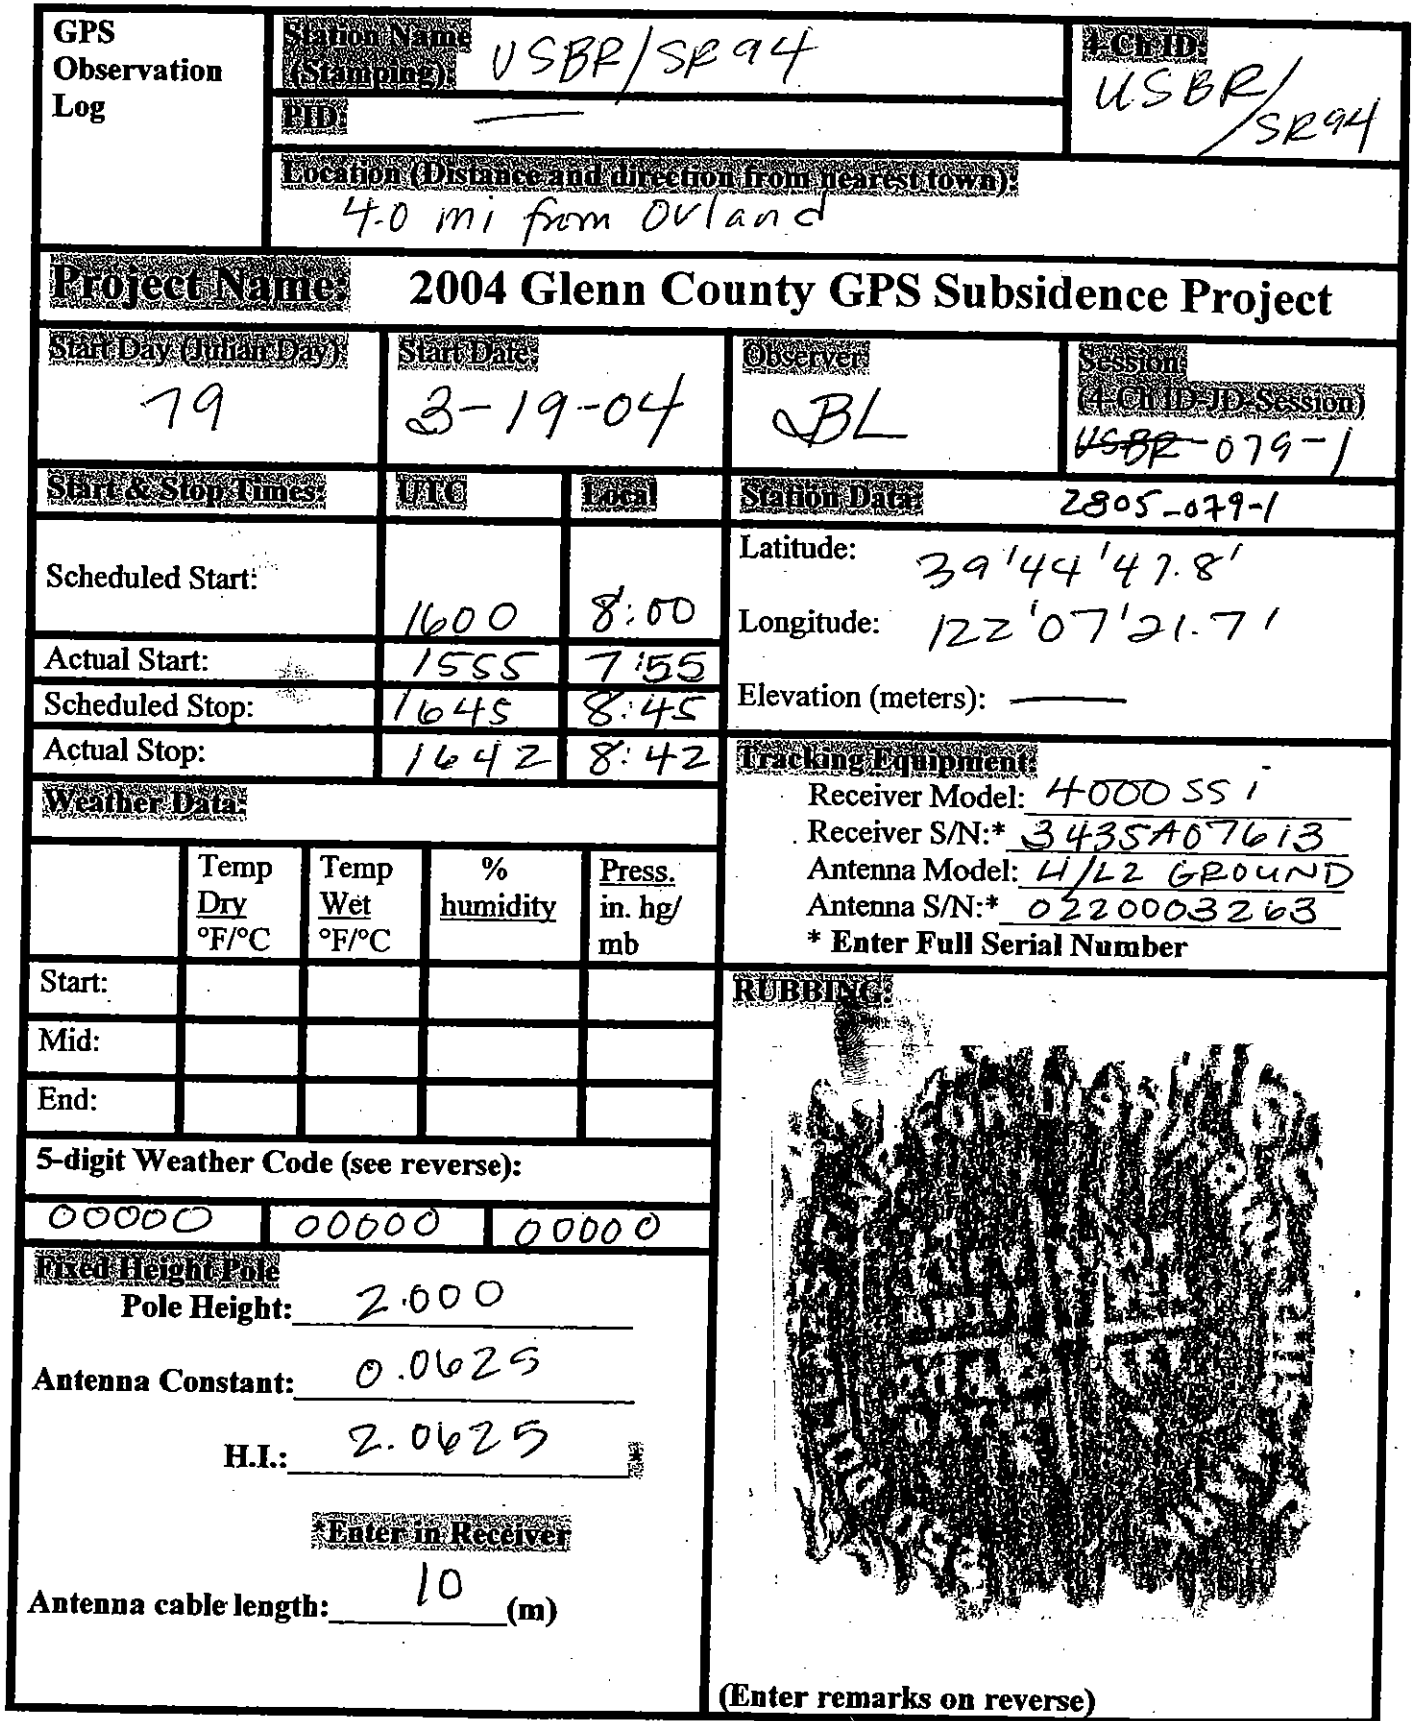 GPS
Observation
Log
Station Name
(Stamping): USBR/SR94
4-Ch ID:
USBR/
SR94
PID: —
Location (Distance and direction from nearest town):
4.0 mi from Orland
Project Name: 2004 Glenn County GPS Subsidence Project
Start Day (Julian Day):
79
Start Date:
3-19-04
Observer:
BL
Session:
(4-Ch ID-JD-Session)
USBR-079-1
Start & Stop Times: UTC Local
Scheduled Start: 1600 8:00
Actual Start: 1555 7:55
Scheduled Stop: 1645 8:45
Actual Stop: 1642 8:42
Station Data: 2805-079-1
Latitude: 39'44'47.8'
Longitude: 122'07'21.7'
Elevation (meters): —
Tracking Equipment:
Receiver Model: 4000 SS i
Receiver S/N:* 3435A07613
Antenna Model: L1/L2 GROUND
Antenna S/N:* 0220003263
* Enter Full Serial Number
Weather Data:
Temp
Dry
°F/°C
Temp
Wet
°F/°C
%
humidity
Press.
in. hg/
mb
Start:
Mid:
End:
5-digit Weather Code (see reverse):
00000 00000 00000
Fixed Height Pole
Pole Height: 2.000
Antenna Constant: 0.0625
H.I.: 2.0625 *
*Enter in Receiver
Antenna cable length: 10 (m)
RUBBING:
(Enter remarks on reverse)